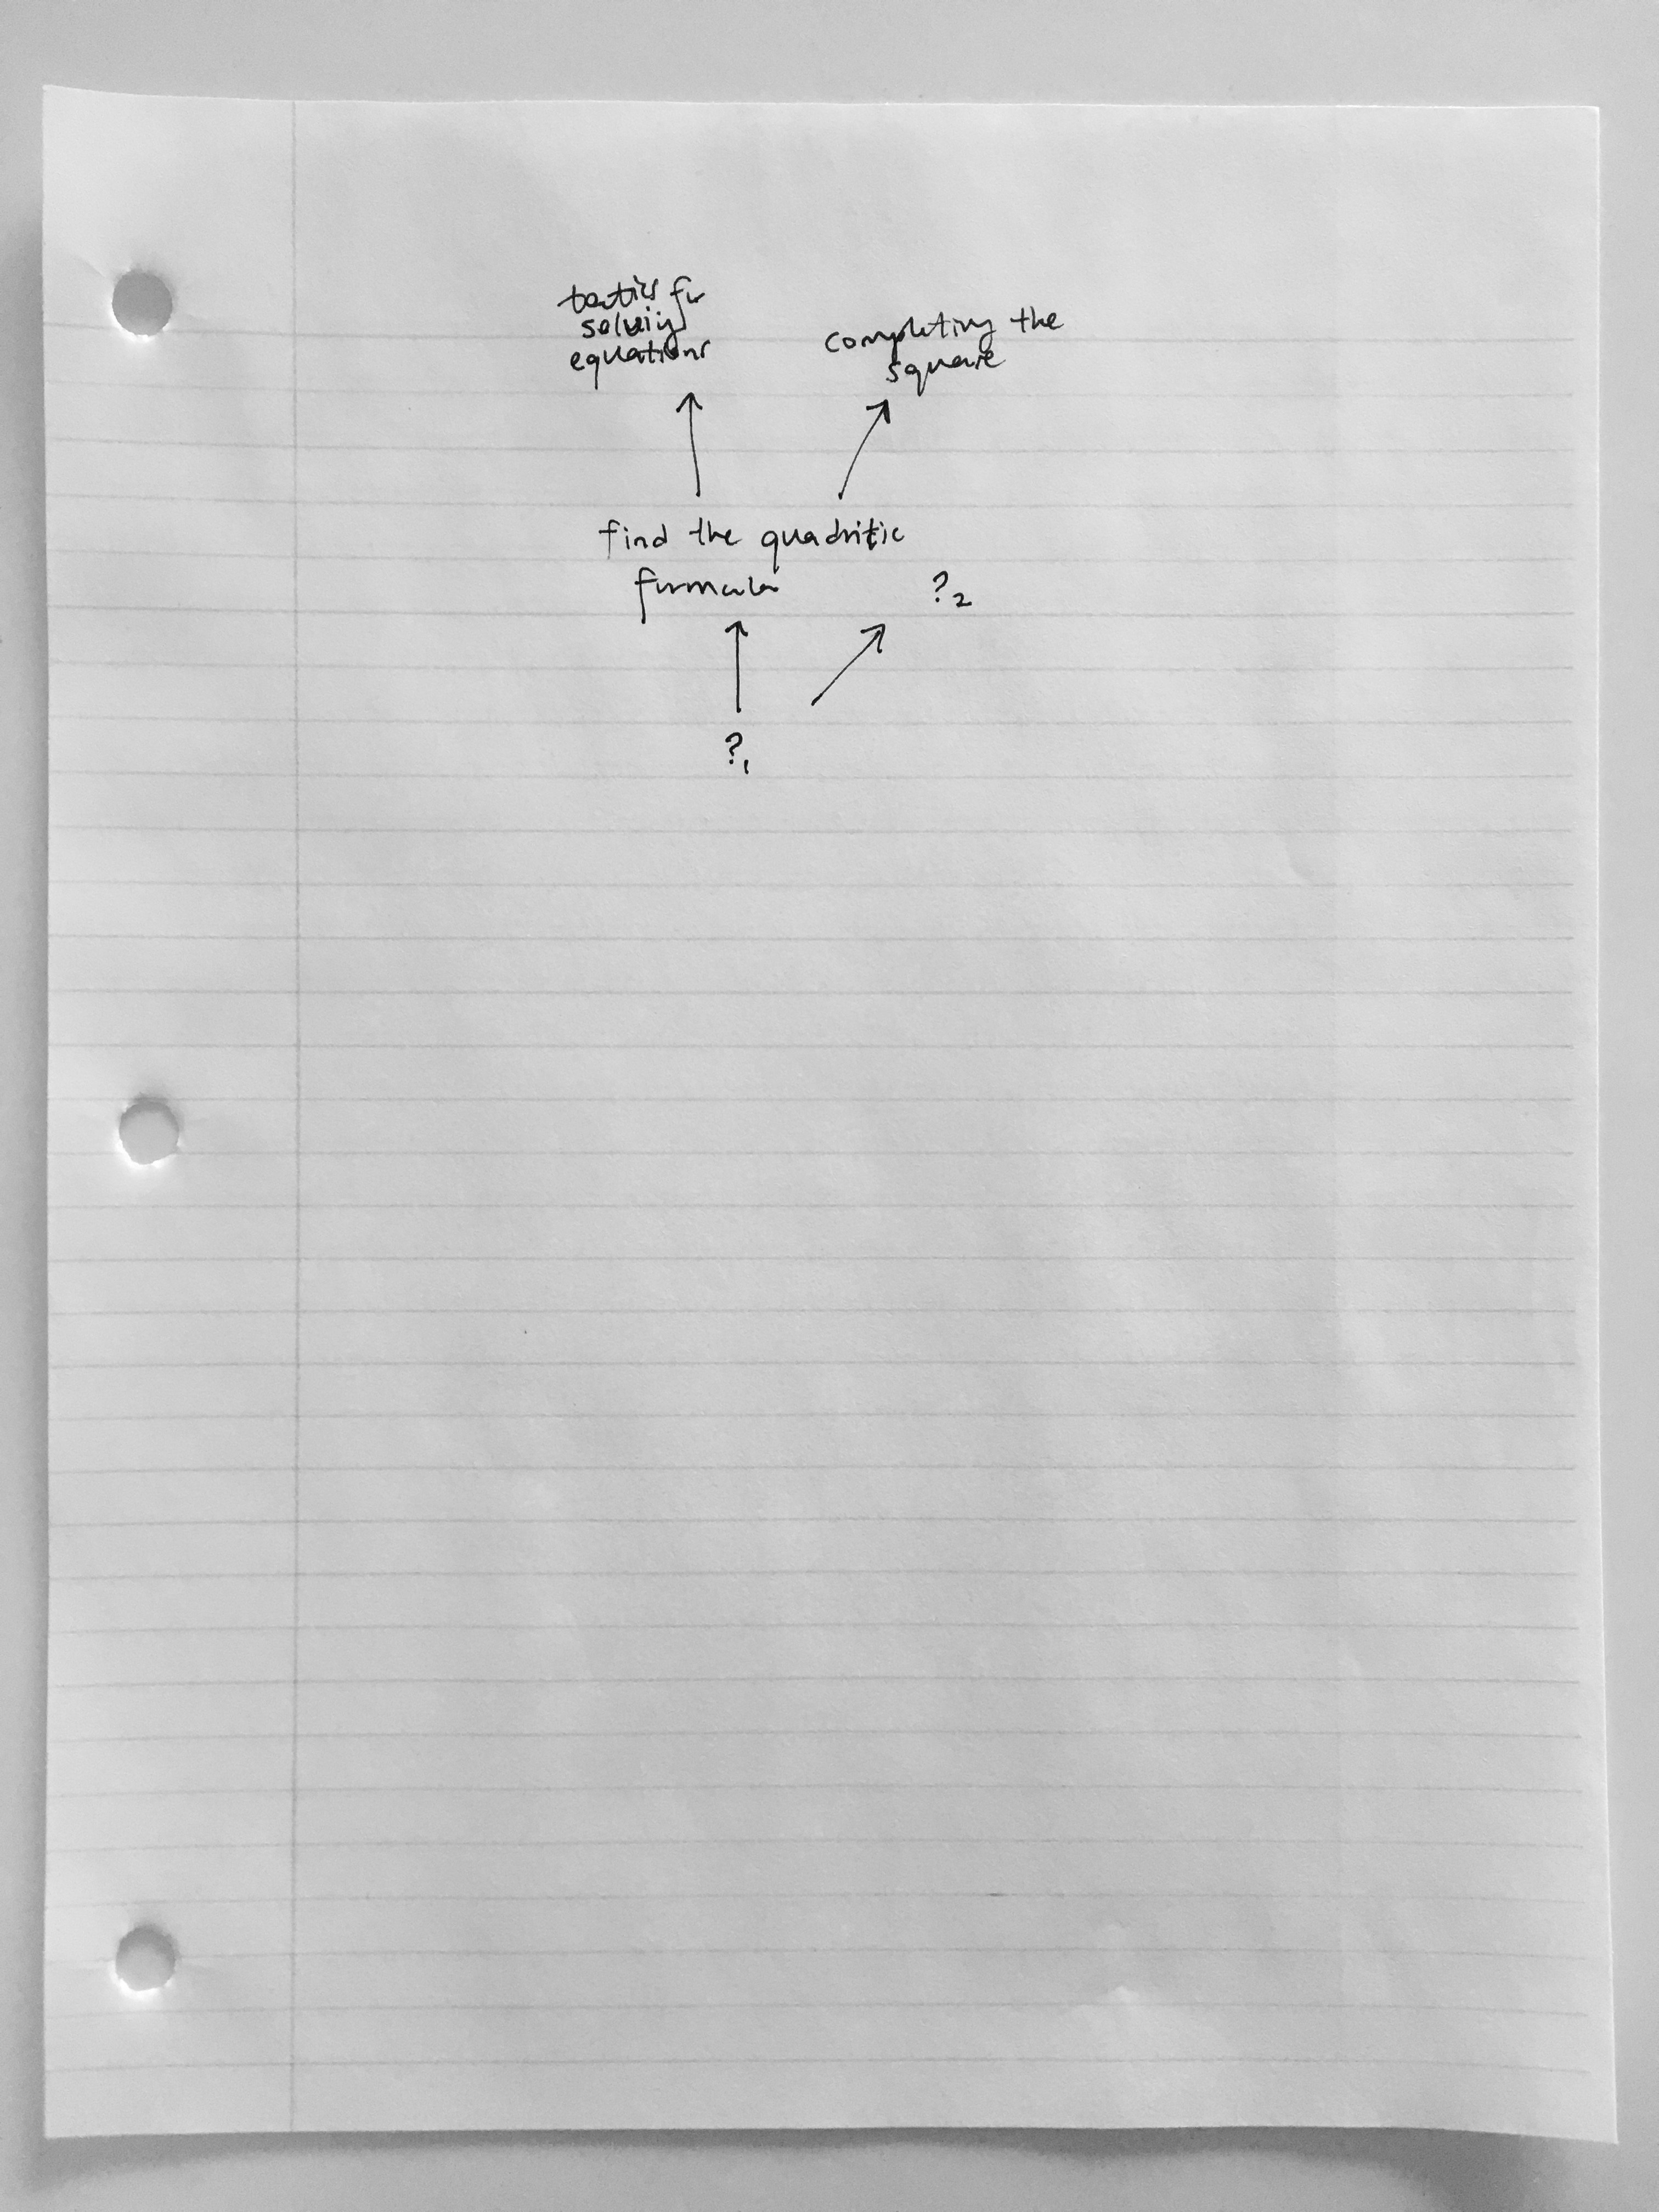 tactics for
solving
equations
completing the
square
find the quadritic
formula
?2
?1